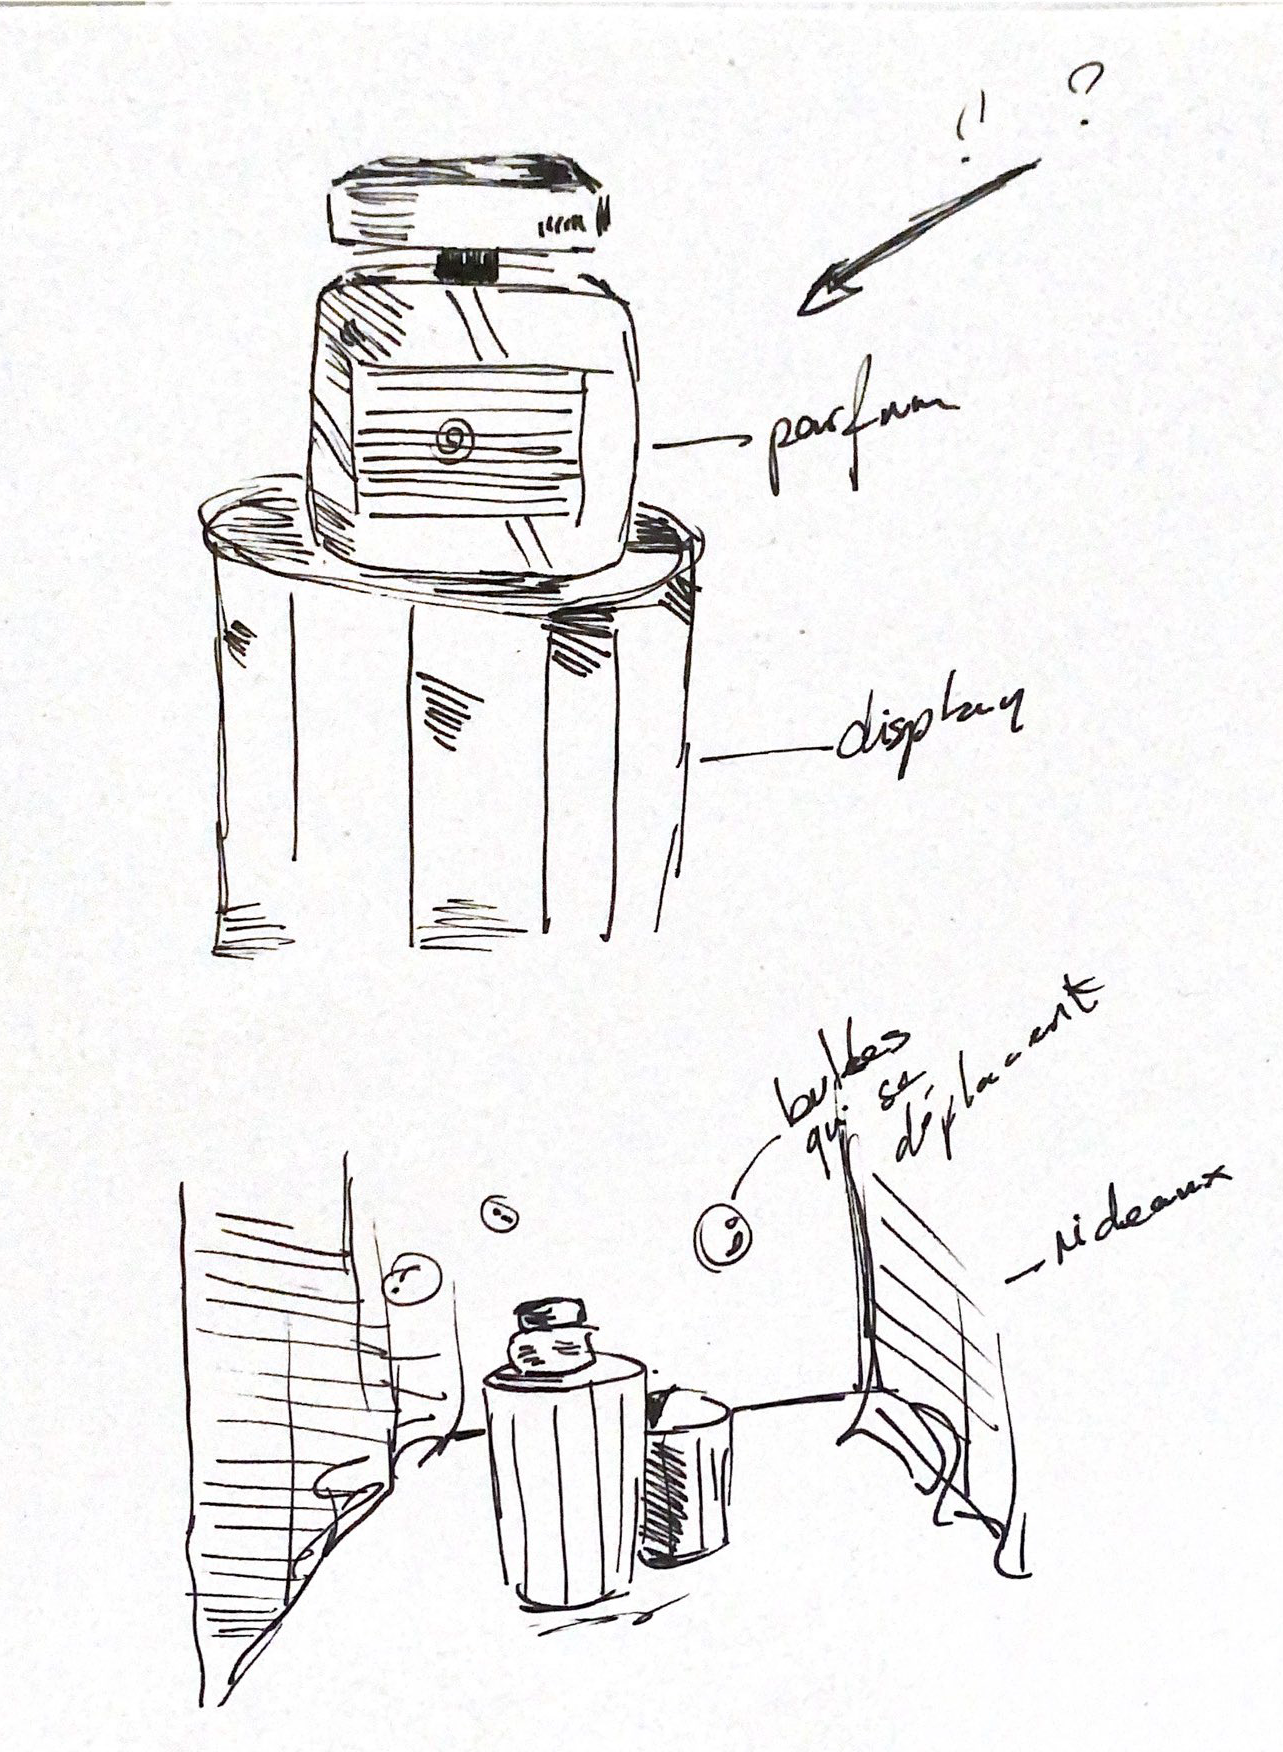 !! ?
parfum
display
bulbes
qui se
déplacent
rideaux